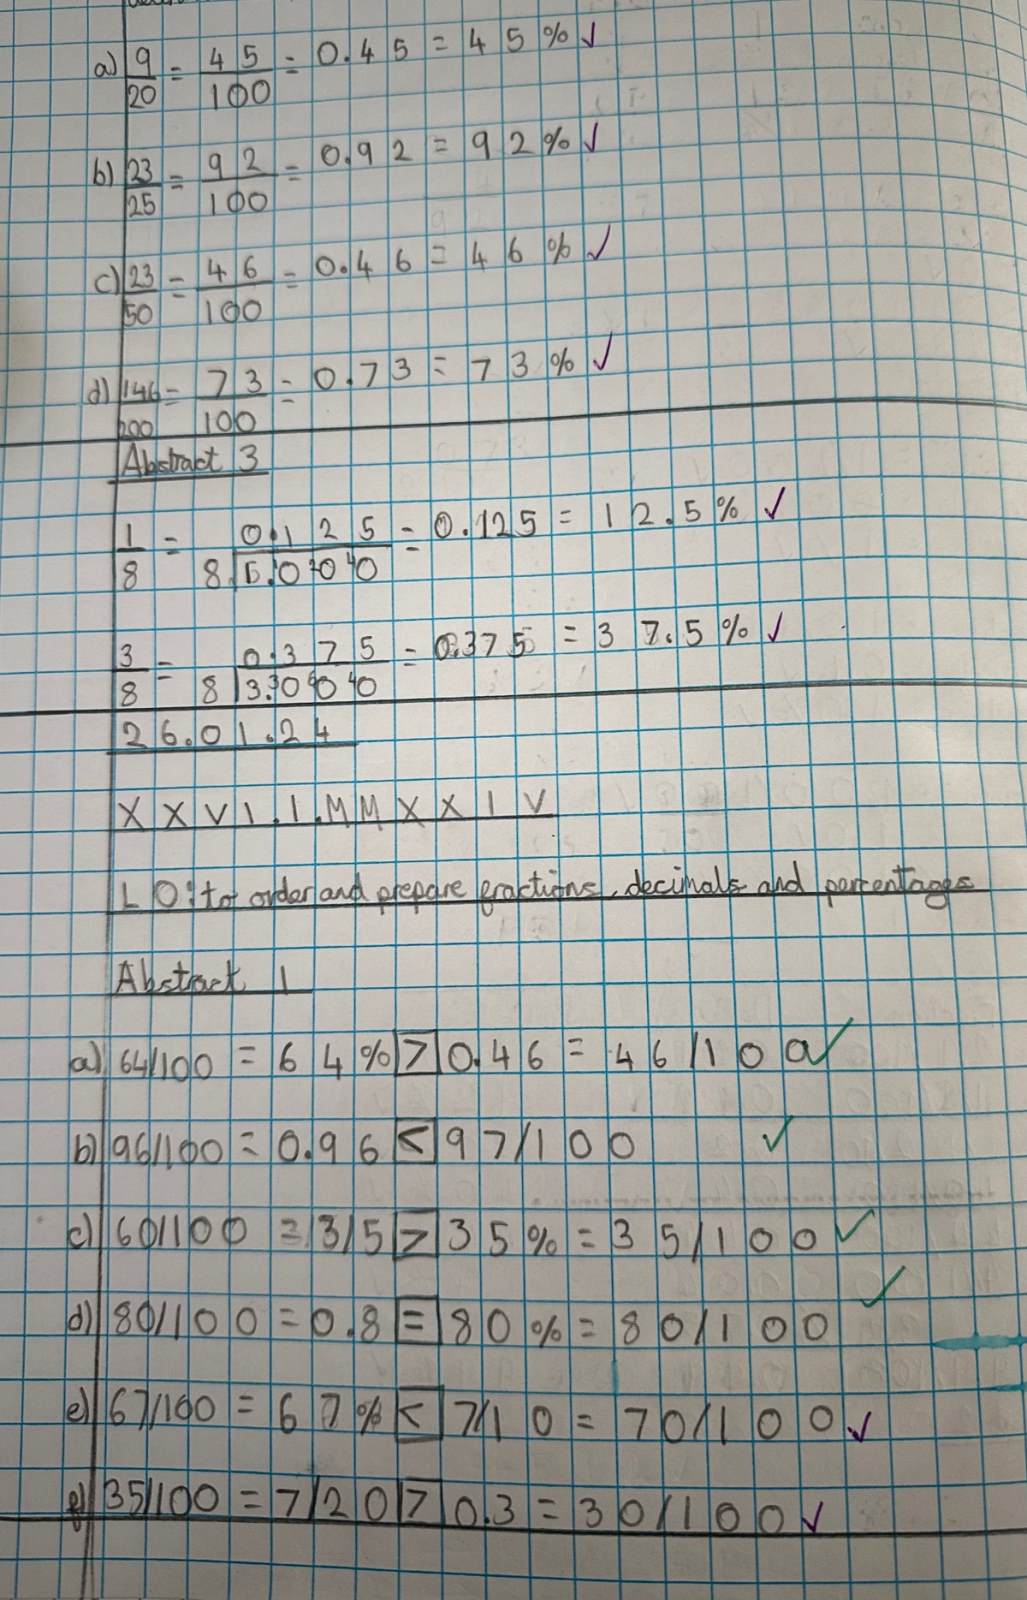 a) 9/20 = 45/100 = 0.45 = 45% ✓
b) 23/25 = 92/100 = 0.92 = 92% ✓
c) 23/50 = 46/100 = 0.46 = 46% ✓
d) 146/200 = 73/100 = 0.73 = 73% ✓
Abstract 3
1/8 = 0.125 = 0.125 = 12.5% ✓
3/8 = 0.375 = 0.375 = 37.5% ✓
8 3.30 60 40
26.01.24
XXVI.I.MMXXIV
LO: to order and prepare fractions, decimals and percentages
Abstract 1
a) 64/100 = 64% > 0.46 = 46/100 ✓
b) 96/100 = 0.96 < 97/100 ✓
c) 60/100 = 3/5 > 35% = 35/100 ✓
d) 80/100 = 0.8 = 80% = 80/100 ✓
e) 67/100 = 67% < 7/10 = 70/100 ✓
f) 35/100 = 7/20 > 0.3 = 30/100 ✓